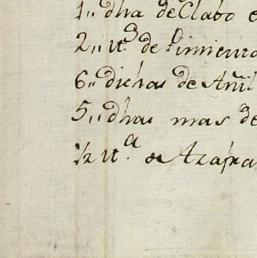 1,, dha de Clabo
2,, @s de Pimienta
6,, dichas de Añil
5,, dhas mas de
1/2 @a de Azafra